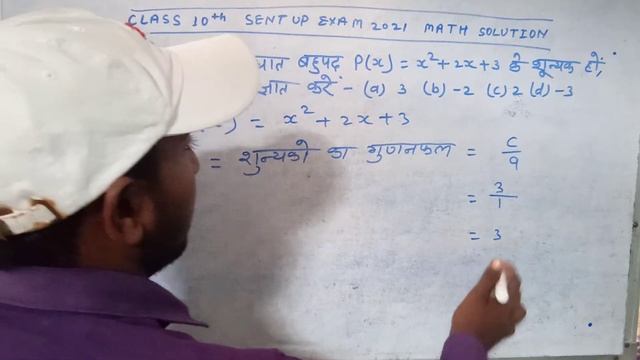 CLASS 10th SENT UP EXAM 2021 MATH SOLUTION
द्विघात बहुपद P(x) = x²+2x+3 के शून्यक हों,
ज्ञात करें - (a) 3 (b) -2 (c) 2 (d) -3
) = x² + 2x + 3
= शुन्यको का गुणनफल = c/a
= 3/1
= 3